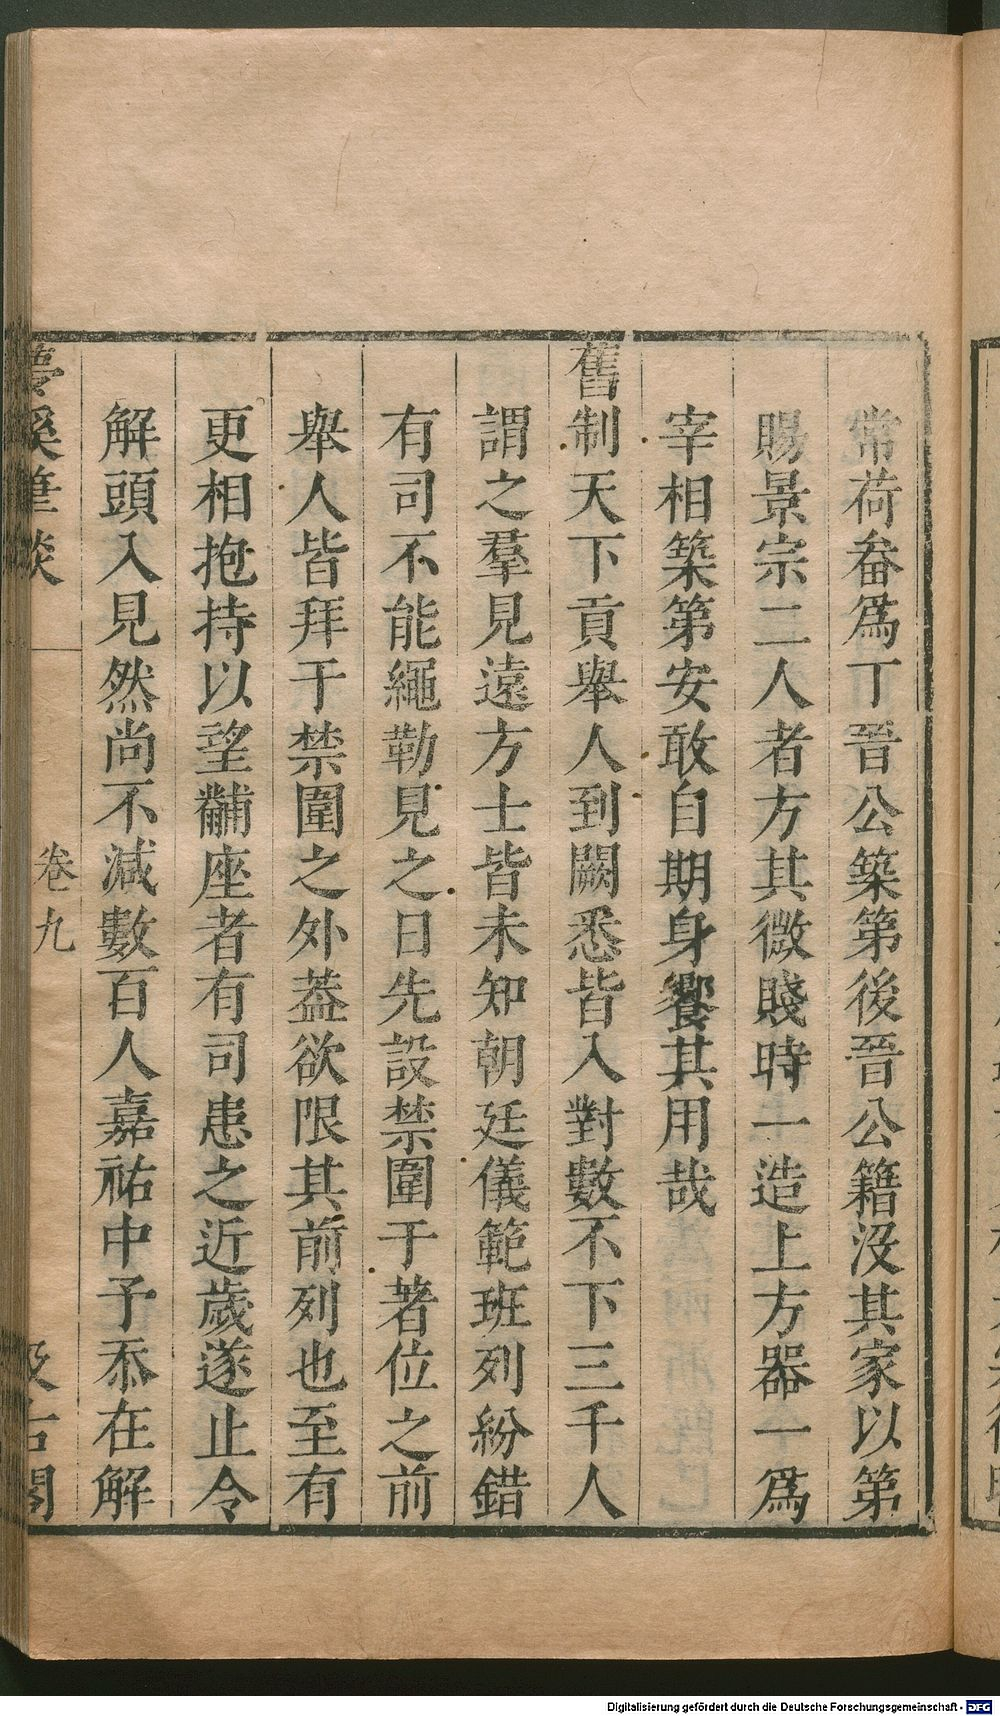 常荷畚爲丁晉公築第後晉公籍没其家以第
賜景宗二人者方其微賤時一造上方器一爲
宰相築第安敢自期身饗其用哉
舊制天下貢舉人到闕悉皆入對數不下三千人
謂之羣見遠方士皆未知朝廷儀範班列紛錯
有司不能繩勒見之日先設禁圍于著位之前
舉人皆拜于禁圍之外葢欲限其前列也至有
更相抱持以望黼座者有司患之近歲遂止令
解頭入見然尚不減數百人嘉祐中予忝在解
夢溪筆談
卷九
汲古閣
Digitalisierung gefördert durch die Deutsche Forschungsgemeinschaft - DFG